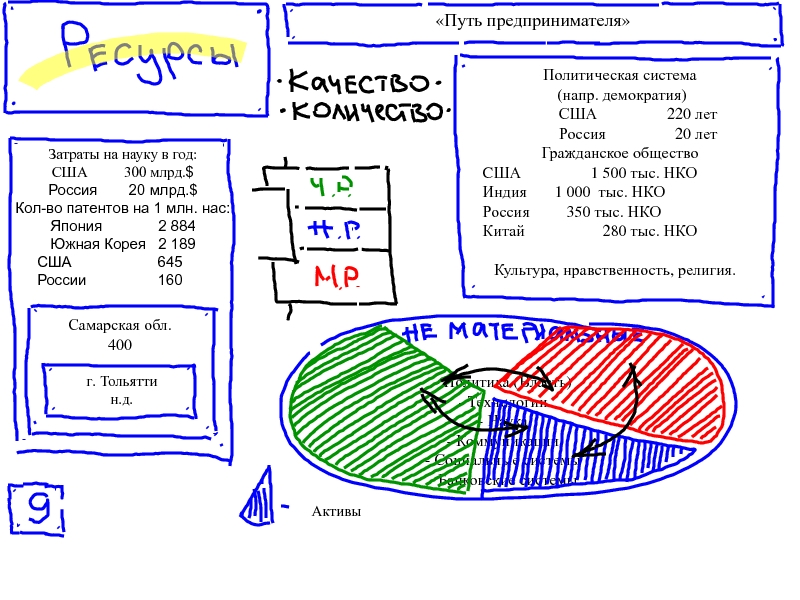 Ресурсы
«Путь предпринимателя»
· Качество ·
· Количество ·
Политическая система
(напр. демократия)
США 220 лет
Россия 20 лет
Гражданское общество
США 1 500 тыс. НКО
Индия 1 000 тыс. НКО
Россия 350 тыс. НКО
Китай 280 тыс. НКО
Культура, нравственность, религия.
Затраты на науку в год:
США 300 млрд.$
Россия 20 млрд.$
Кол-во патентов на 1 млн. нас:
Япония 2 884
Южная Корея 2 189
США 645
России 160
Самарская обл.
400
г. Тольятти
н.д.
Ч.Р.
Н.Р.
М.Р.
Не материальные
Политика (Власть)
Технологии
- Коммуникации
- Социальные системы
- Банковские системы
9
- Активы